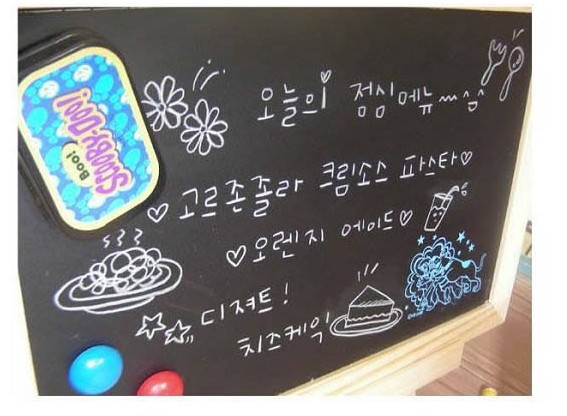 오늘의 점심메뉴~~^^
♡고르존졸라 크림소스 파스타♡
♡오렌지 에이드♡
디져트!
치즈케익
SCOOBY-DOO!
BOO!